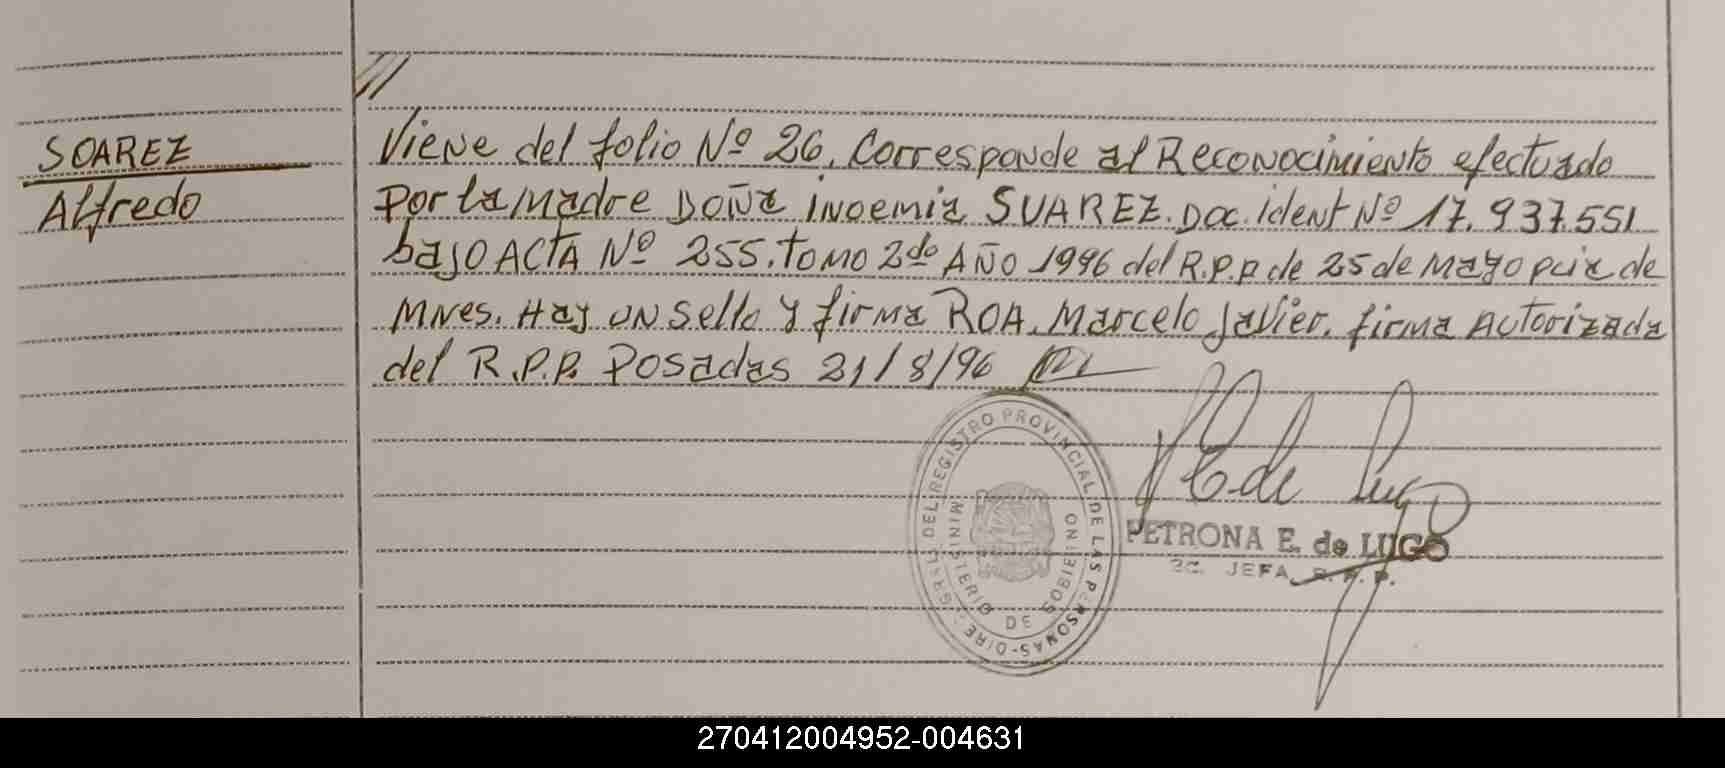 SOAREZ
Alfredo
//
Viene del folio Nº 26. Corresponde al Reconocimiento efectuado
por la madre Doña Inoemia SUAREZ. Doc. ident Nº 17.937.551
bajo ACTA Nº 255. tomo 2do AÑO 1996 del R.P.P de 25 de Mayo pcia de
Mnes. Hay un sello y firma ROA, Marcelo Javier, firma Autorizada
del R.P.P. Posadas 21/8/96
DIRE. GRAL. DEL REGISTRO PROVINCIAL DE LAS PERSONAS
MINISTERIO DE GOBIERNO
E de Lugo
PETRONA E. de LUGO
JEFA R.P.P.
270412004952-004631